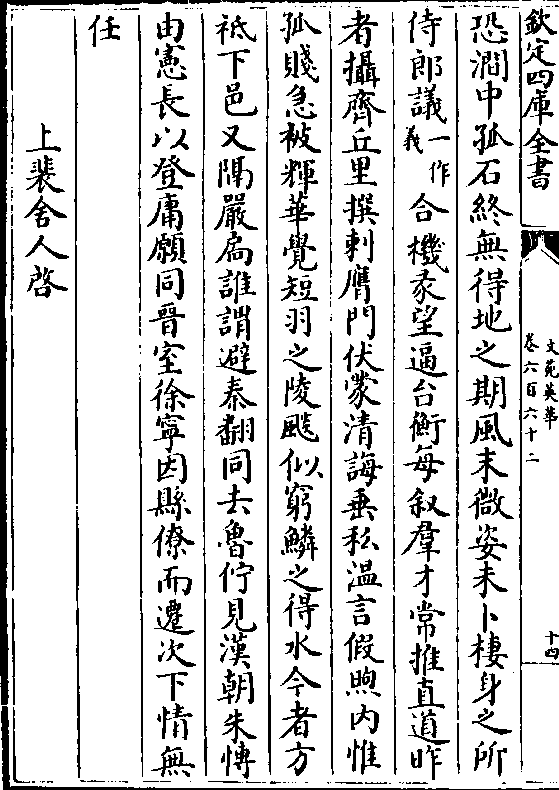 欽定四庫全書
文苑英華
卷六百六十二
十四
恐澗中孤石終無得地之期風末微姿未卜棲身之所
侍郎議一作義合機彖望逼台衡每叙羣才常推直道昨
者攝齊丘里撰刺膺門伏蒙清誨垂私温言假煦内惟
孤賤急被輝華覺短羽之陵飈似窮鱗之得水今者方
祗下邑又隔嚴扃誰謂避秦翻同去魯佇見漢朝朱愽
由憲長以登庸願同晉室徐寧因縣僚而遷次下情無
任
上裴舍人啓